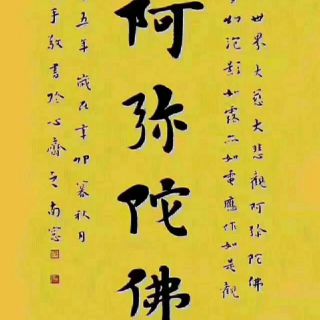 世界大慈大悲观阿弥陀佛
如泡影如露亦如电应作如是观
阿弥陀佛
五年岁在辛卯暮秋月
手敬书于心斋之南窗